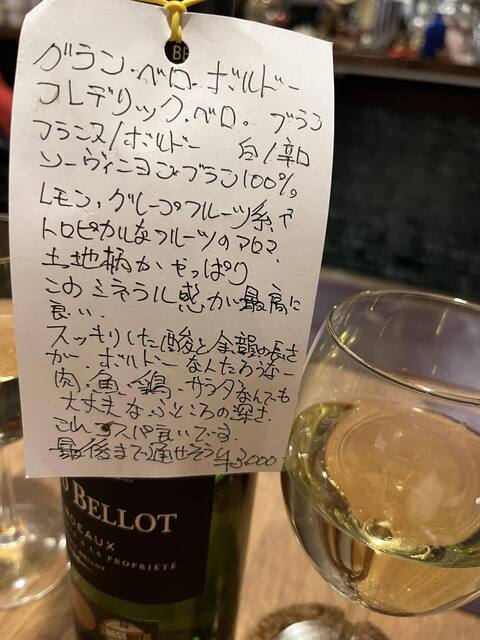 BE
グラン・ベロ ボルドー
フレデリック・ベロ。ブラン
フランス/ボルドー 白/辛口
ソーヴィニヨン・ブラン100%。
レモン、グレープフルーツ系、や
トロピカルなフルーツのアロマ、
土地柄か、やっぱり
このミネラル感が最高に
良い。
スッキリした酸と余韻の長さ
が、ボルドーなんだろうなー
肉、魚、鍋、サラダなんでも
大丈夫なふところの深さ。
これ、コスパ良いです。
最後まで通せそう ¥3000
D BELLOT
RDEAUX
À LA PROPRIÉTÉ